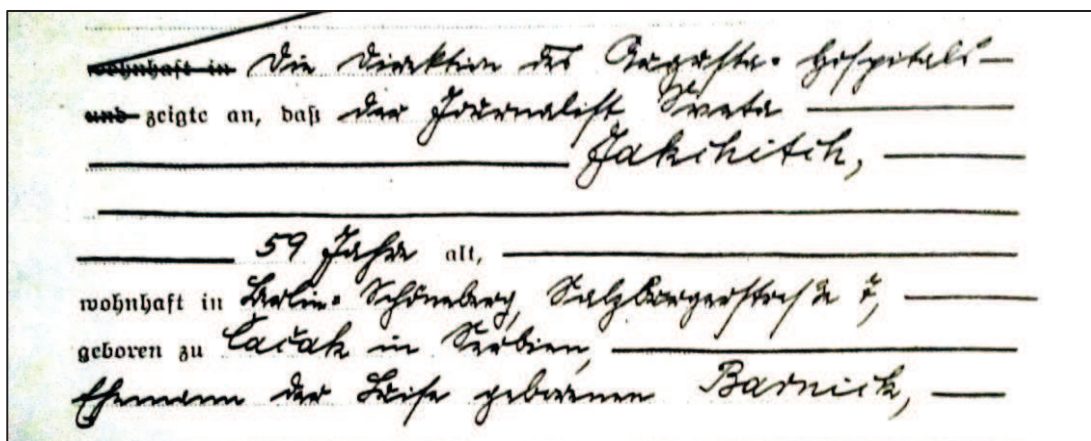 wohnhaft in Die Direktion des Augusta-Hospitals
und zeigte an, daß der Journalist Sveta
Jakchitch,
59 Jahre alt,
wohnhaft in Berlin-Schöneberg, Salzburgerstraße 7,
geboren zu Čačak in Serbien,
Ehemann der Luise geborenen Barnick,